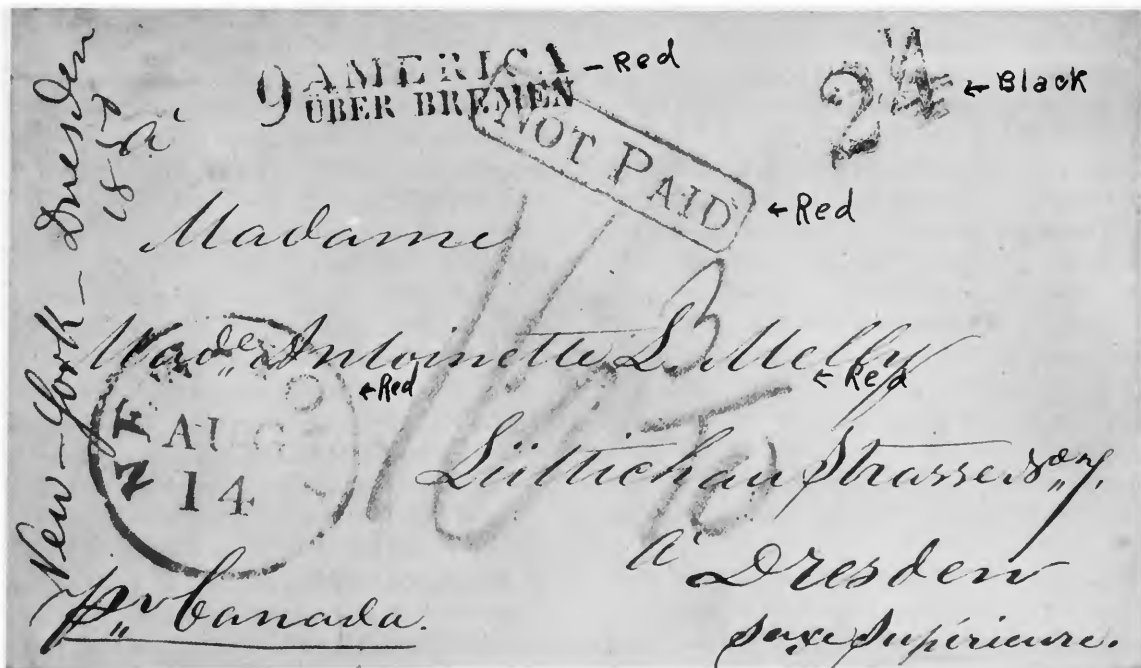 New-York - Dresden
9 AMERICA
ÜBER BREMEN
- Red
24
← Black
NOT PAID
← Red
à
Madame
Made Antoinette L. Melly
← Red
← Red
AUG
14
Lüttichau Strasse
à Dresden
Saxe Supérieure.
pr Canada.